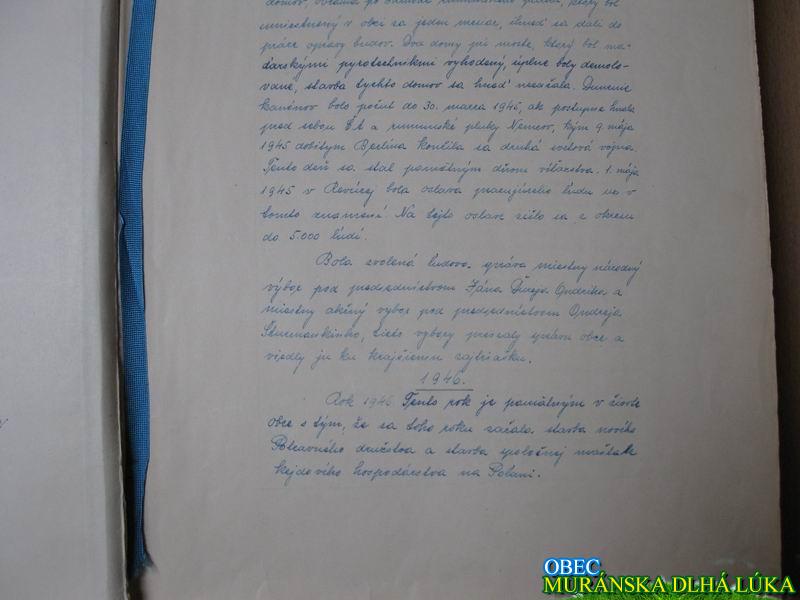 domov, 
umiestnený v obci za jeden mesiac, ihneď sa dali do
práce opravy budov. Dva domy pri moste, ktorý bol ma-
ďarskými pyrotechnikmi vyhodený, úplne boly demolo-
vané, stavba tychto domov sa hneď nezačala. Dunenie
kanónov bolo počuť do 30. marca 1945, ak postupne hnala
pred sebou ČA a rumunské pluky Nemcov, kým 9. mája
1945 dobitým Berlína končila sa druhá svetová vojna.
Tento deň sa stal pamätným dňom víťazstva. 1. mája
1945 v Revúcej bola oslava pracujúceho ľudu už v
tomto znamení. Na tejto oslave zišlo sa z okresu
do 5.000 ľudí.
Bola zvolená ľudova správa miestny národný
výbor pod predsedníctvom Jána Ondrika a
miestny akčný výbor pod predsedníctvom Ondreja
tieto výbory prevzaly správu obce a
viedly ju ku krajšiemu zajtrajšku.
1946.
Rok 1946 Tento rok je pamätným v živote
obce s tým, že sa toho roku začala stavba nového
Potravného družstva a stavba spoločnej maštale
hospodárstva na Polani.
OBEC
MURÁNSKA DLHÁ LÚKA